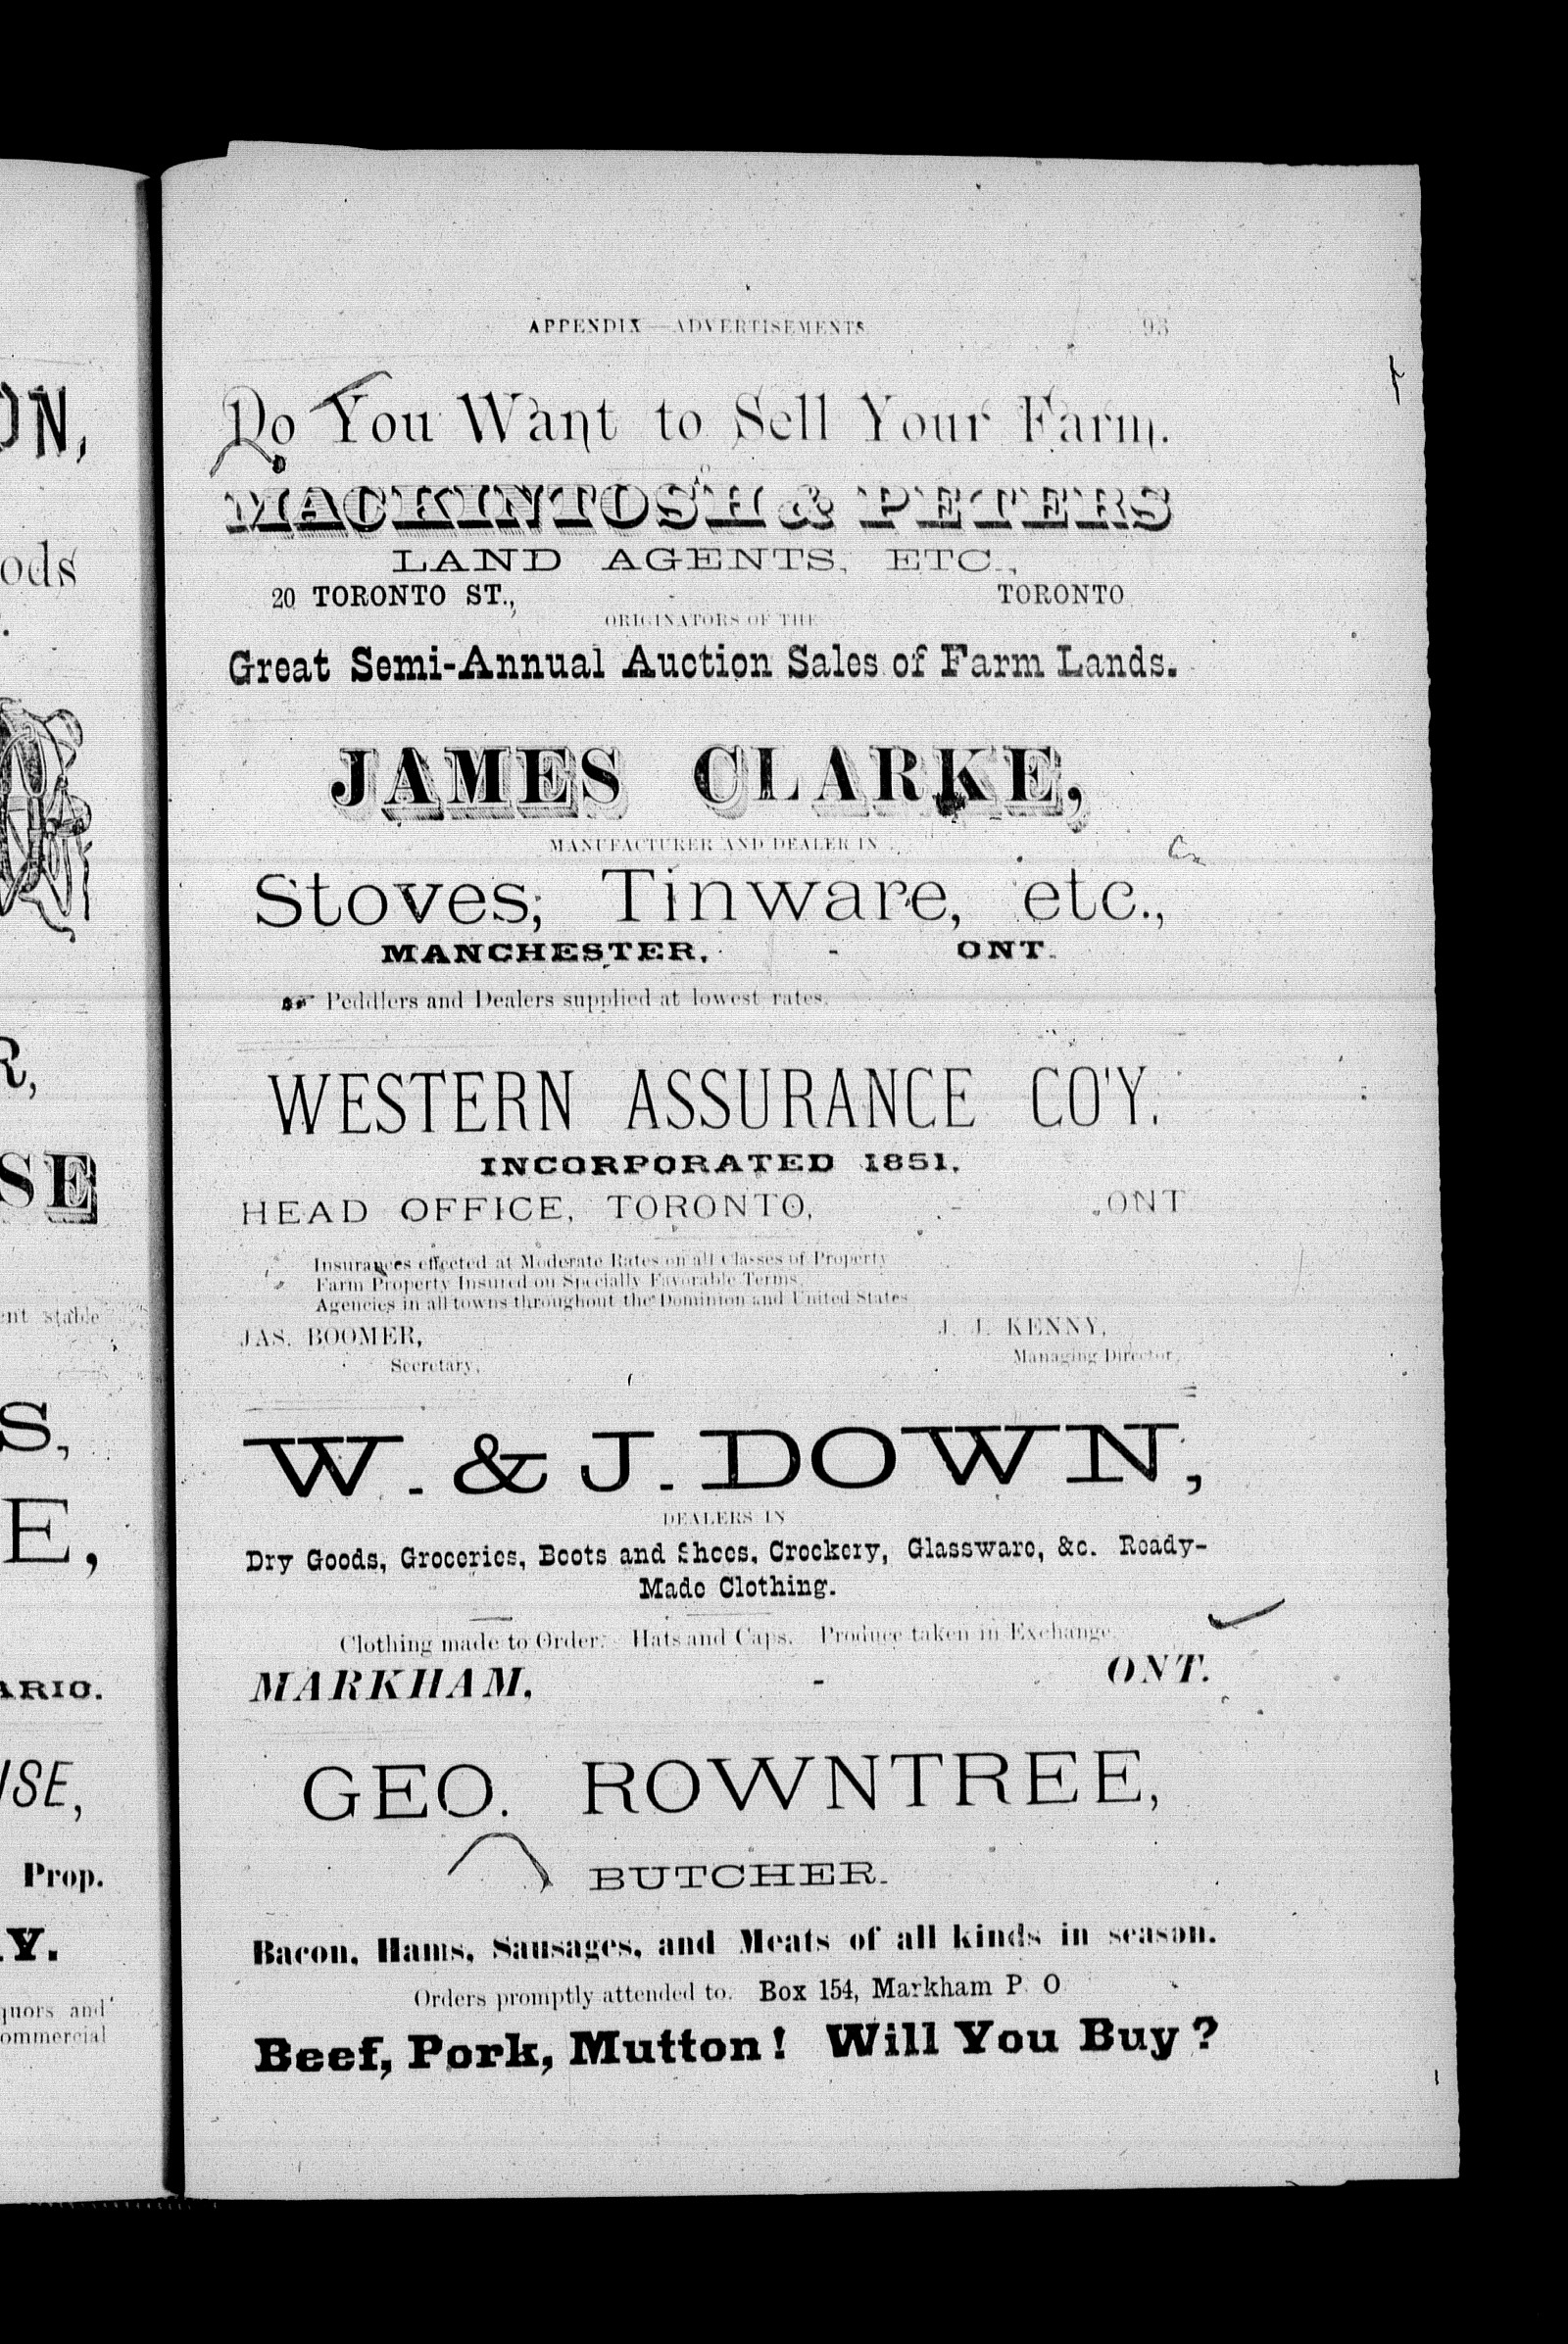 ON,
ods
R,
SE
ent stable
S,
E,
ARIO.
USE,
Prop.
Y.
quors and
ommercial
APPENDIX—ADVERTISEMENTS. 93
Do You Want to Sell Your Farm.
MACKINTOSH & PETERS
LAND AGENTS, ETC.,
20 TORONTO ST., - TORONTO
ORIGINATORS OF THE
Great Semi-Annual Auction Sales of Farm Lands.
JAMES CLARKE,
MANUFACTURER AND DEALER IN
Stoves, Tinware, etc.,
MANCHESTER, - ONT.
☞ Peddlers and Dealers supplied at lowest rates.
WESTERN ASSURANCE CO'Y.
INCORPORATED 1851.
HEAD OFFICE, TORONTO, - ONT
Insurances effected at Moderate Rates on all Classes of Property
Farm Property Insured on Specially Favorable Terms.
Agencies in all towns throughout the Dominion and United States
JAS. BOOMER, J. J. KENNY,
Secretary. Managing Director.
W. & J. DOWN,
DEALERS IN
Dry Goods, Groceries, Boots and Shoes, Crockery, Glassware, &c. Ready-
Made Clothing.
Clothing made to Order. Hats and Caps. Produce taken in Exchange.
MARKHAM, - ONT.
GEO. ROWNTREE,
BUTCHER.
Bacon, Hams, Sausages, and Meats of all kinds in season.
Orders promptly attended to. Box 154, Markham P. O
Beef, Pork, Mutton! Will You Buy?